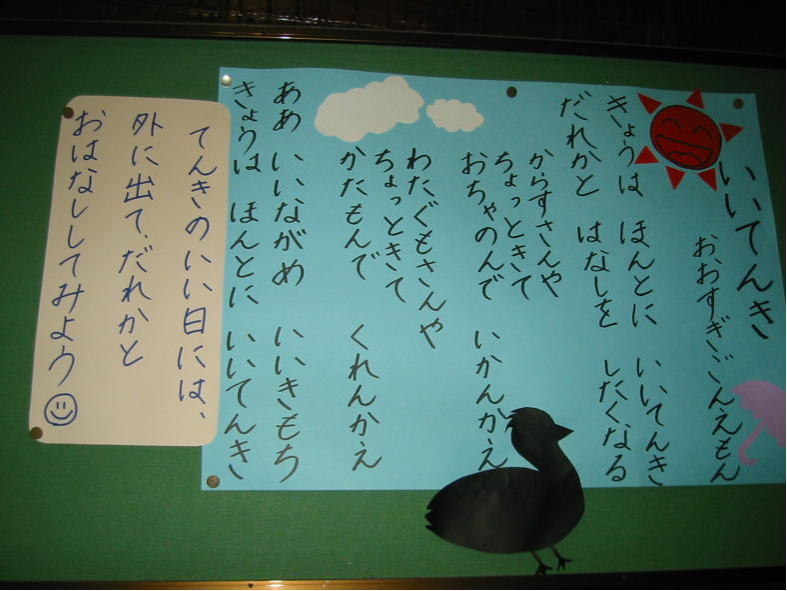 いいてんき
おおすぎごんえもん
きょうは ほんとに いいてんき
だれかと はなしを したくなる
からすさんや
ちょっときて
おちゃのんで いかんかえ
わたぐもさんや
ちょっときて
かたもんで くれんかえ
ああ いいながめ いいきもち
きょうは ほんとに いいてんき
てんきのいい日には、
外に出て、だれかと
おはなししてみよう